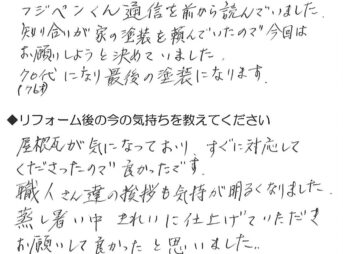 フジベンくん通信を前から読んでいました。
知り合いが家の塗装を頼んでいたので今回は
お願いしようと決めていました。
70代になり最後の塗装になります。
(76才)
◆リフォーム後の今の気持ちを教えてください
屋根瓦が気になっており、すぐに対応して
くださったので良かったです。
職人さん達の挨拶も気持が明るくなりました。
蒸し暑い中 きれいに仕上げていただき
お願いして良かったと思いました。